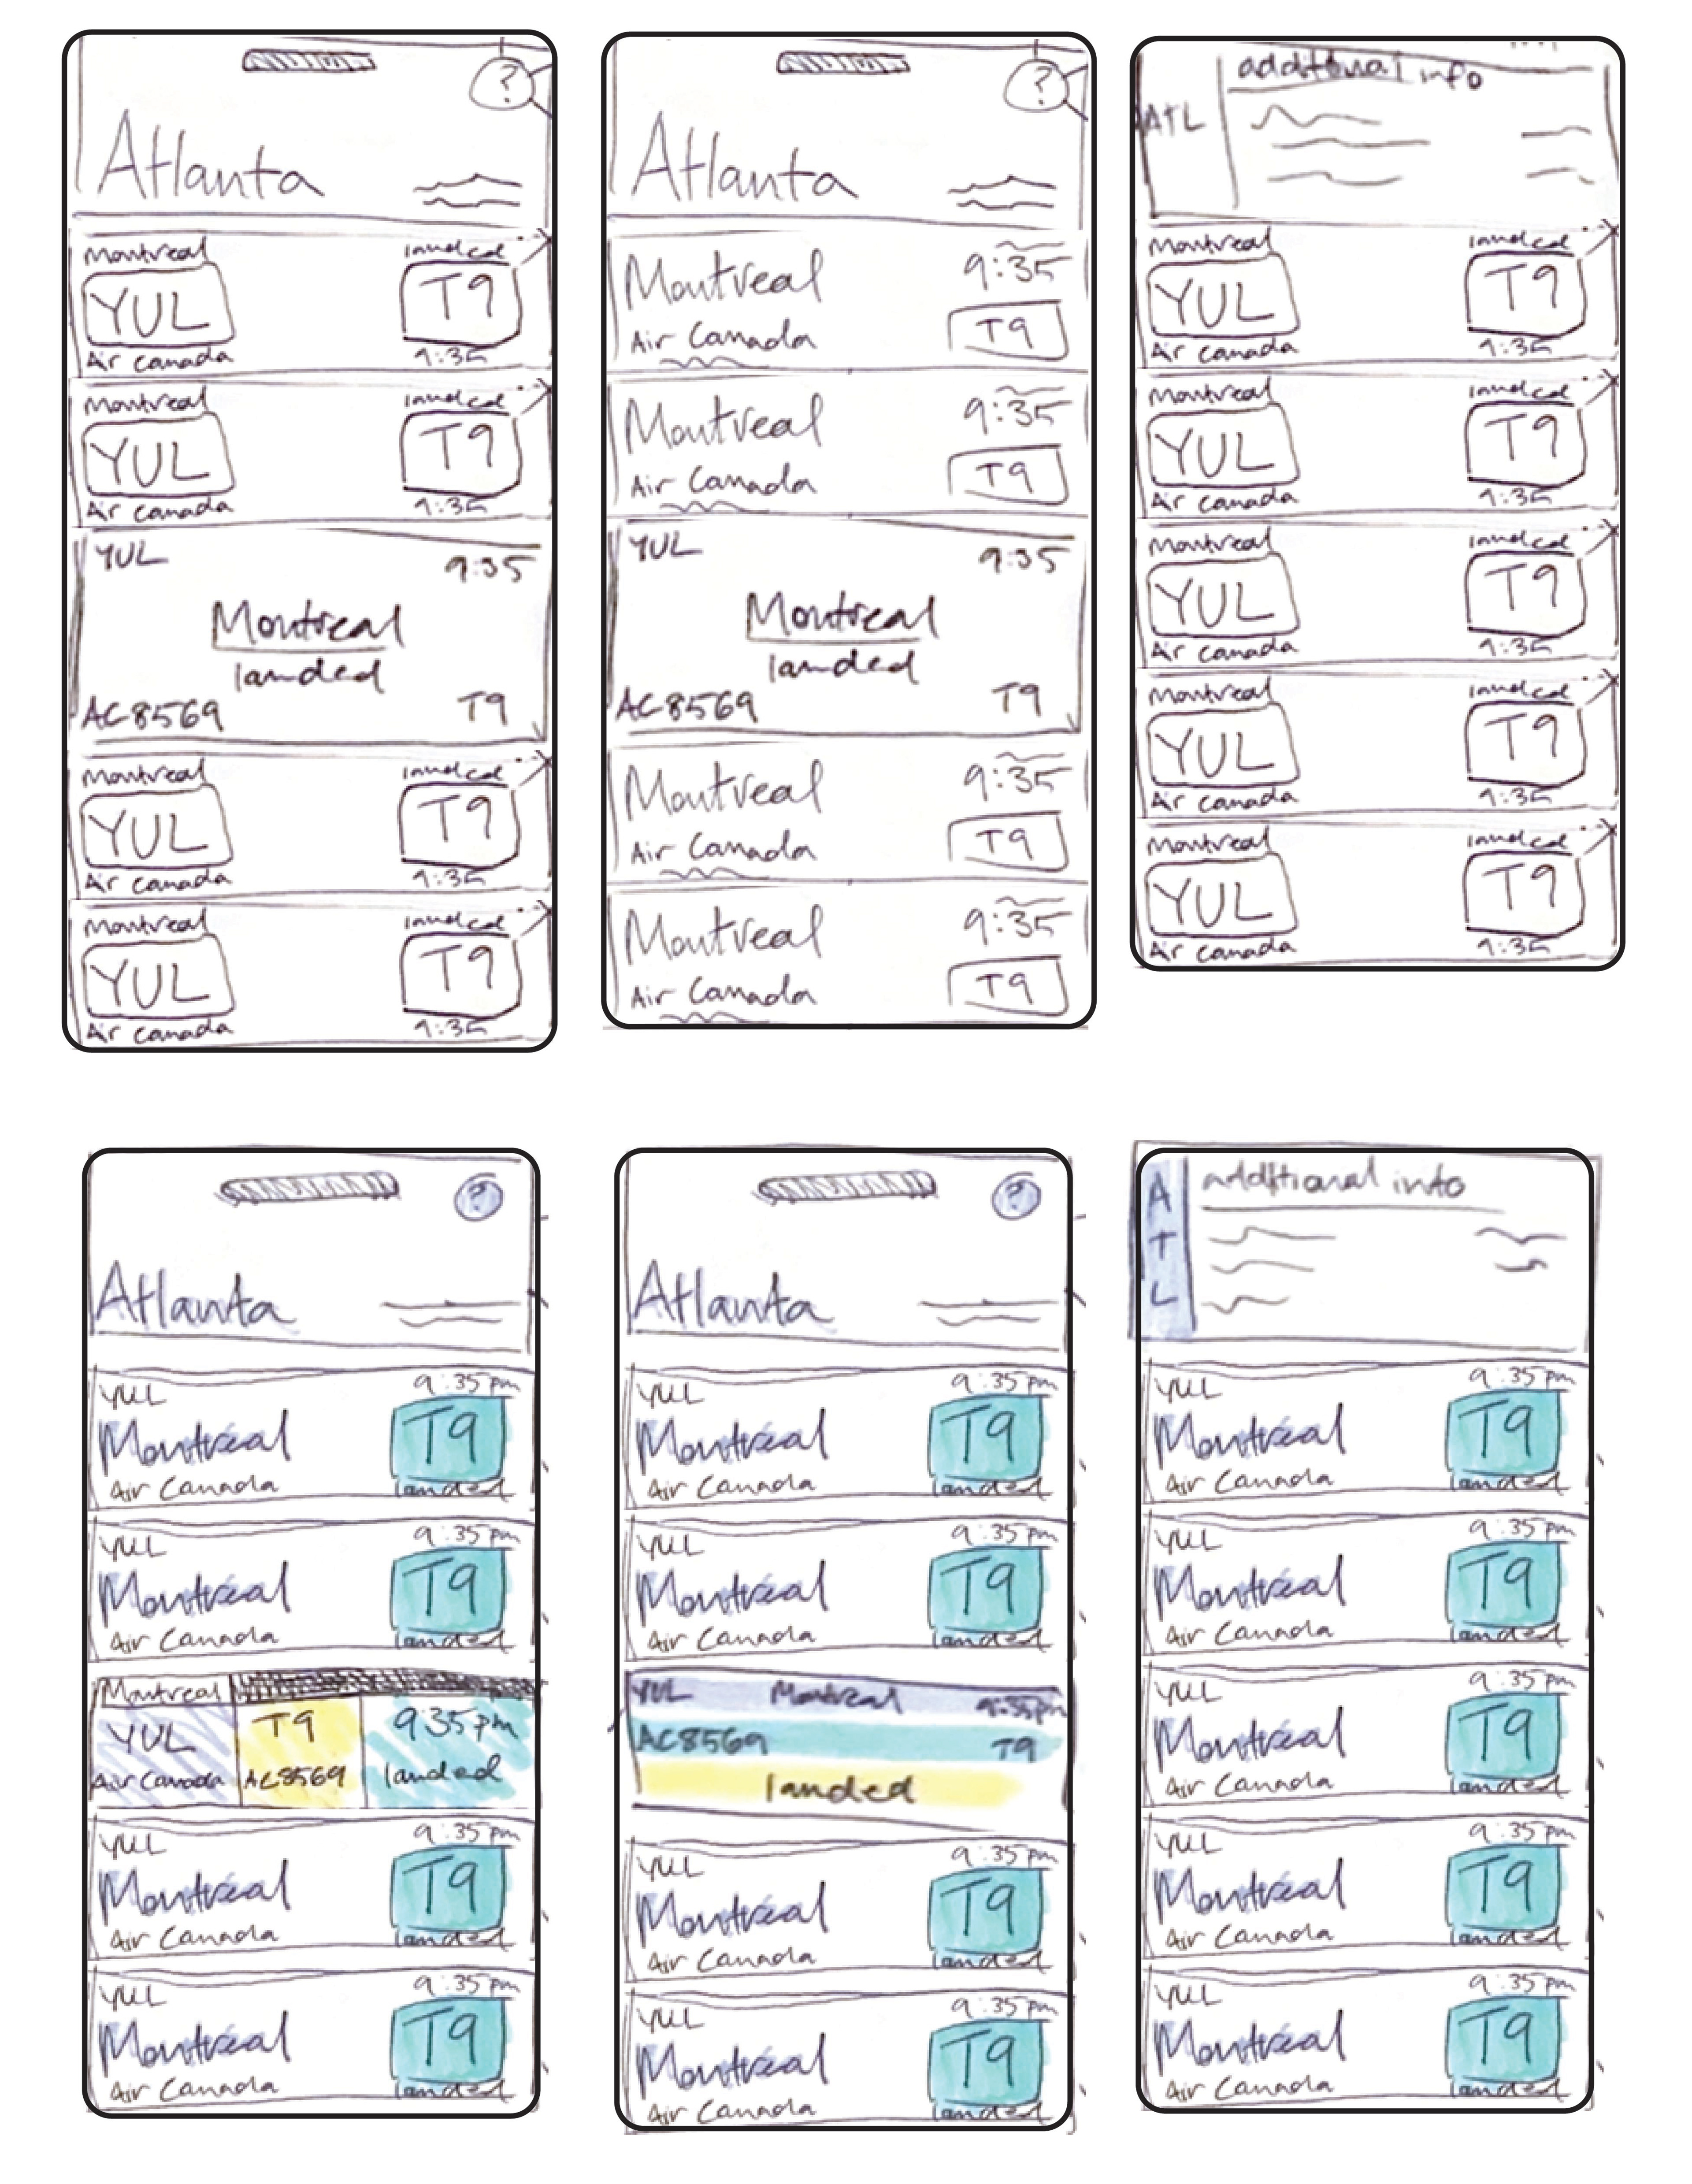 ?
Atlanta
Montreal landed
YUL T9
Air Canada 9:35
Montreal landed
YUL T9
Air Canada 9:35
YUL 9:35
Montreal
landed
AC8569 T9
Montreal landed
YUL T9
Air Canada 9:35
Montreal landed
YUL T9
Air Canada 9:35
?
Atlanta
Montreal 9:35
Air Canada T9
Montreal 9:35
Air Canada T9
YUL 9:35
Montreal
landed
AC8569 T9
Montreal 9:35
Air Canada T9
Montreal 9:35
Air Canada T9
additional info
ATL
Montreal landed
YUL T9
Air Canada 9:35
Montreal landed
YUL T9
Air Canada 9:35
Montreal landed
YUL T9
Air Canada 9:35
Montreal landed
YUL T9
Air Canada 9:35
Montreal landed
YUL T9
Air Canada 9:35
?
Atlanta
YUL 9:35pm
Montréal T9
Air Canada landed
YUL 9:35pm
Montréal T9
Air Canada landed
Montreal
YUL T9 935pm
Air Canada AC8569 landed
YUL 9:35pm
Montréal T9
Air Canada landed
YUL 9:35pm
Montréal T9
Air Canada landed
?
Atlanta
YUL 9:35pm
Montréal T9
Air Canada landed
YUL 9:35pm
Montréal T9
Air Canada landed
YUL Montreal 9:35pm
AC8569 T9
landed
YUL 9:35pm
Montréal T9
Air Canada landed
YUL 9:35pm
Montréal T9
Air Canada landed
ATL
additional info
YUL 9:35pm
Montréal T9
Air Canada landed
YUL 9:35pm
Montréal T9
Air Canada landed
YUL 9:35pm
Montréal T9
Air Canada landed
YUL 9:35pm
Montréal T9
Air Canada landed
YUL 9:35pm
Montréal T9
Air Canada landed